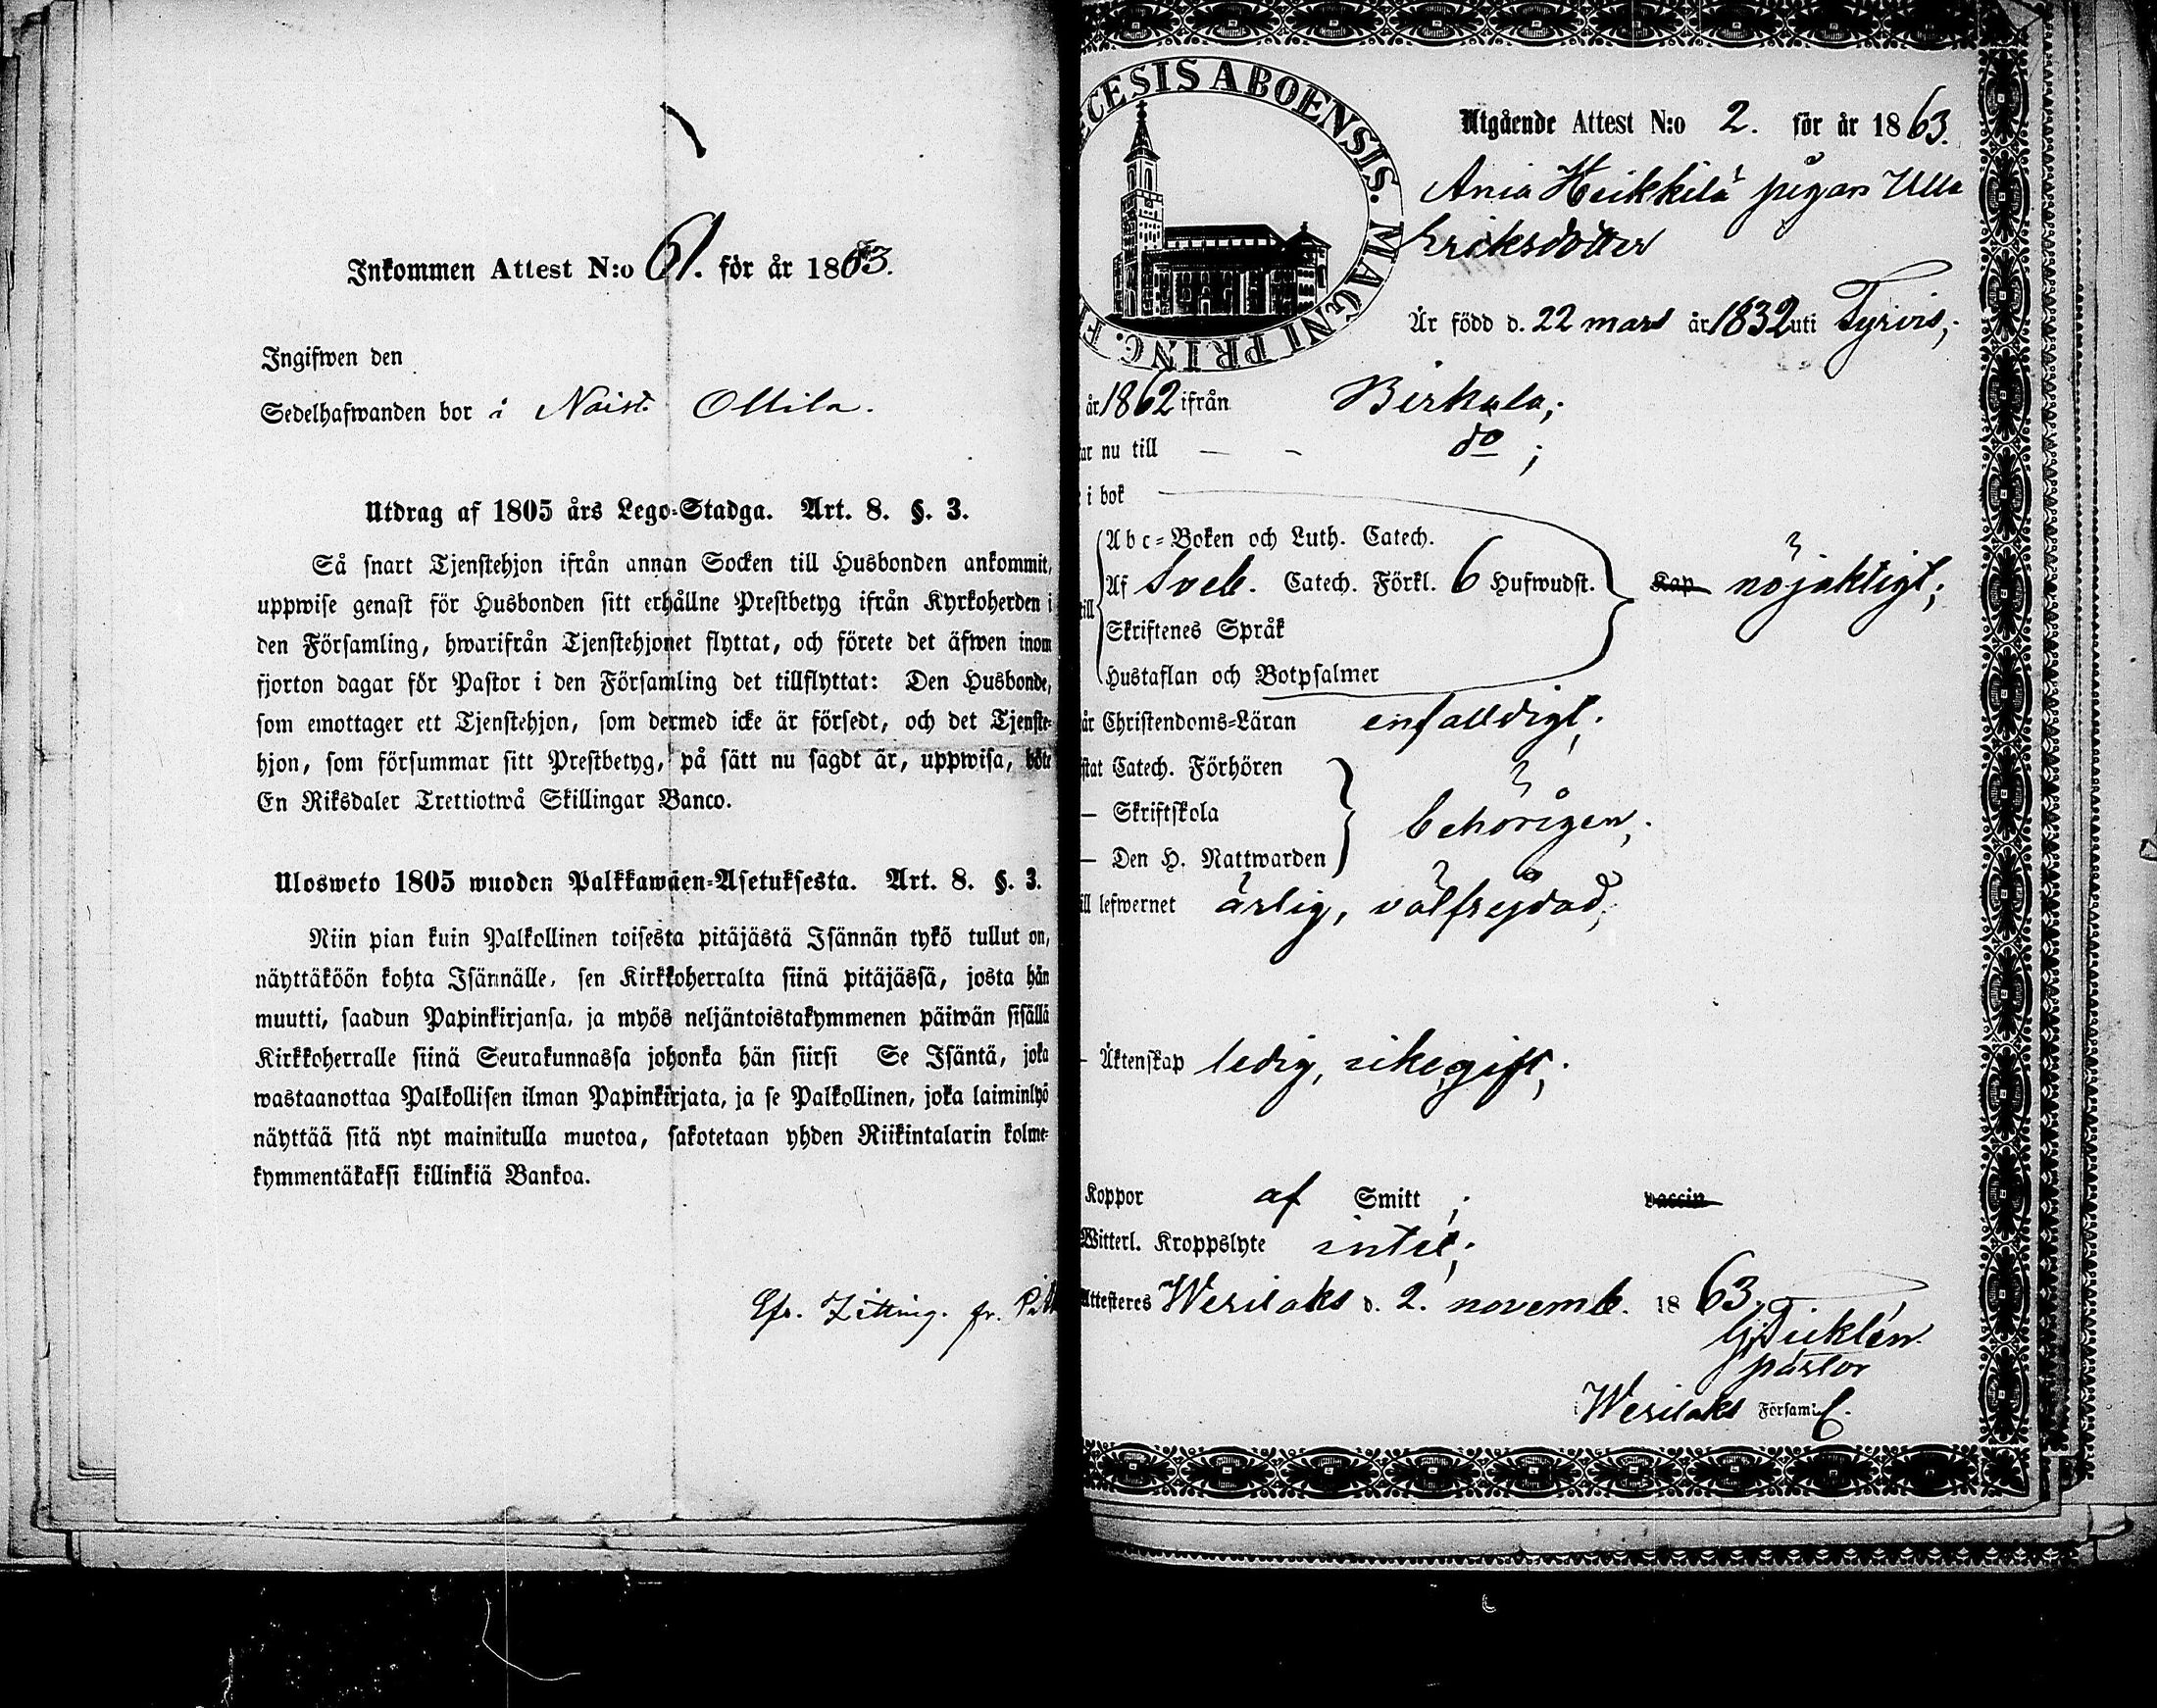 Inkommen Attest N:o 61. för år 1863.
Ingifwen den
Sedelhafwanden bor i Naist. Ollila.
Utdrag af 1805 års Lego-Stadga. Art. 8. §. 3.
Så snart Tjenstehjon ifrån annan Socken till Husbonden ankommit,
uppwise genast för Husbonden sitt erhållne Prestbetyg ifrån Kyrkoherden i
den Församling, hwarifrån Tjenstehjonet flyttat, och förete det äfwen inom
fjorton dagar för Pastor i den Församling det tillflyttat: Den Husbonde,
som emottager ett Tjenstehjon, som dermed icke är försedt, och det Tjenste-
hjon, som försummar sitt Prestbetyg, på sätt nu sagdt är, uppwisa, böte
En Riksdaler Trettiotwå Skillingar Banco.
Ulosweto 1805 wuoden Palkkawäen-Asetuksesta. Art. 8. §. 3.
Niin pian kuin Palkollinen toisesta pitäjästä Isännän tykö tullut on,
näyttäköön kohta Isännälle, sen Kirkkoherralta siinä pitäjässä, josta hän
muutti, saadun Papinkirjansa, ja myös neljäntoistakymmenen päiwän sisällä
Kirkkoherralle siinä Seurakunnassa johonka hän siirsi Se Isäntä, joka
wastaanottaa Palkollisen ilman Papinkirjata, ja se Palkollinen, joka laiminlyö
näyttää sitä nyt mainitulla muotoa, sakotetaan yhden Riikintalarin kolme-
kymmentäkaksi killinkiä Bankoa.
Efr. Zitting. fr.
CESIS ABOENSIS. MAGNI PRINC. F
Utgående Attest N:o 2. för år 1863.
Ania Heikkilä pigan Ulla
Eriksdotter
Är född d. 22 mars år 1832 uti Tyrvis,
år 1862 ifrån Birkala,
ar nu till — — do;
i bok
Abc-Boken och Luth. Catech.
Af Sveb. Catech. Förkl. 6 Hufwudst. Kap nöjaktigt;
till
Skriftenes Språk
Hustaflan och Botpsalmer
år Christendoms-Läran enfalldigt;
stat Catech. Förhören
— Skriftskola behörigen;
— Den H. Nattwarden
ill lefwernet ärlig, välfrejdad;
- Äktenskap ledig, ikegift;
Koppor af Smitt; vaccin
Witterl. Kroppslyte intet;
Attesteres Wesilaks d. 2. novemb. 1863.
pastor
i Wesilaks Församl.